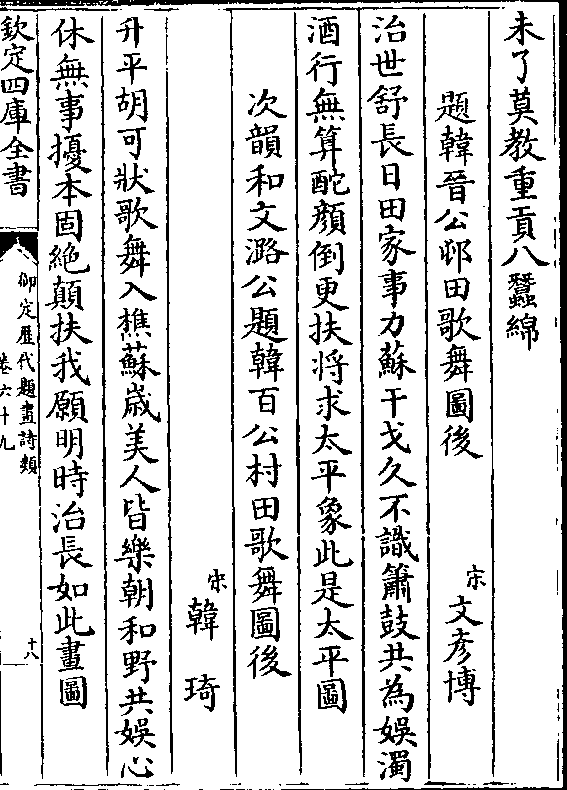 未了莫教重貢八蠶綿
題韓晉公邨田歌舞圖後
宋文彥博
治世舒長日田家事力蘇干戈久不識簫鼓共為娛濁
酒行無算酡顔倒更扶將求太平象此是太平圖
次韻和文潞公題韓百公村田歌舞圖後
宋韓琦
升平胡可狀歌舞入樵蘇歳美人皆樂朝和野共娛心
休無事擾本固絶顛扶我願明時治長如此畫圖
欽定四庫全書
御定歷代題畫詩類
卷六十九
十八